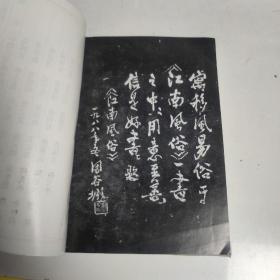 寓移风易俗于
《江南风俗》一书
之中，用意至善
信是好书题
《江南风俗》
一九八八年冬 周谷城